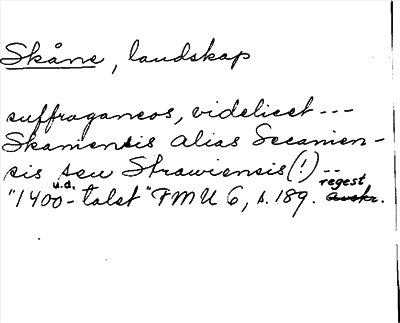 Skåne, landskap
suffraganeos, videlicet ---
Skaniensis alias Secanien-
sis seu Strawiensis (!) --
u.d. regest
"1400-talet" FMU 6, s. 189. Avskr.